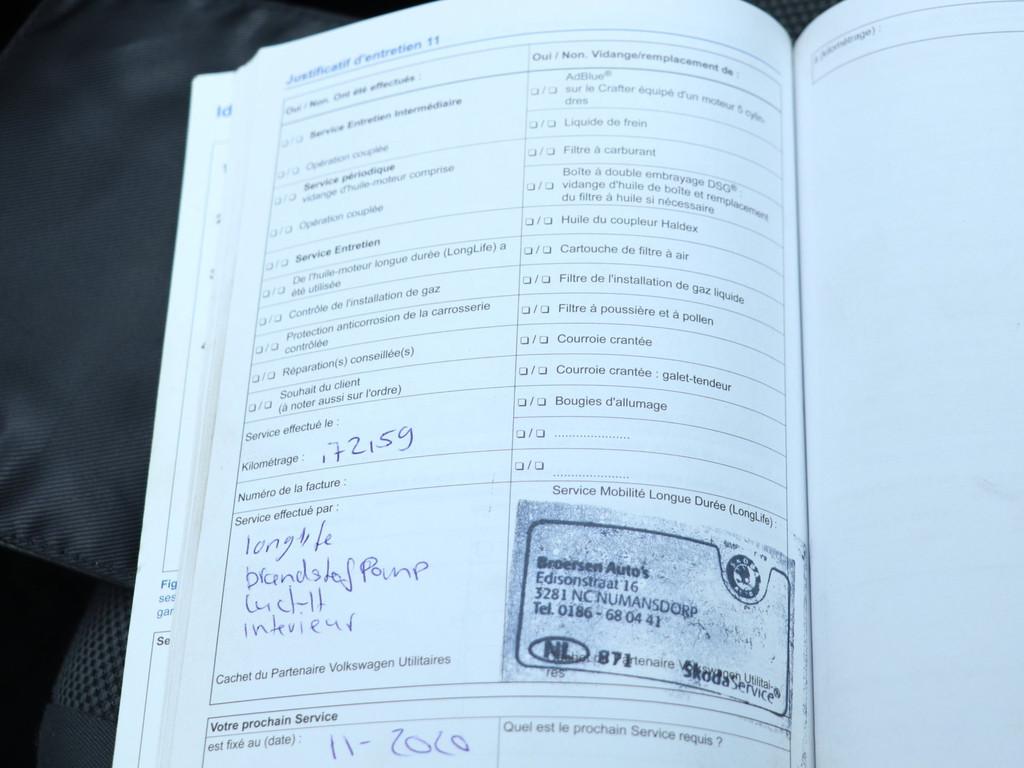 Justificatif d'entretien 11
Oui / Non. Ont été effectués :
❏ / ❏ Service Entretien Intermédiaire
❏ / ❏ Opération couplée
❏ / ❏ Service périodique
vidange d'huile-moteur comprise
❏ / ❏ Opération couplée
❏ / ❏ Service Entretien
❏ / ❏ De l'huile-moteur longue durée (LongLife) a
été utilisée
❏ / ❏ Contrôle de l'installation de gaz
❏ / ❏ Protection anticorrosion de la carrosserie
contrôlée
❏ / ❏ Réparation(s) conseillée(s)
❏ / ❏ Souhait du client
(à noter aussi sur l'ordre)
Service effectué le :
Kilométrage : 172159
Numéro de la facture :
Service effectué par :
longlife
brandstof
interieur
Cachet du Partenaire Volkswagen Utilitaires
Oui / Non. Vidange/remplacement de :
AdBlue®
❏ / ❏ sur le Crafter équipé d'un moteur 5 cylin-
dres
❏ / ❏ Liquide de frein
❏ / ❏ Filtre à carburant
Boîte à double embrayage DSG® :
❏ / ❏ vidange d'huile de boîte et remplacement
du filtre à huile si nécessaire
❏ / ❏ Huile du coupleur Haldex
❏ / ❏ Cartouche de filtre à air
❏ / ❏ Filtre de l'installation de gaz liquide
❏ / ❏ Filtre à poussière et à pollen
❏ / ❏ Courroie crantée
❏ / ❏ Courroie crantée : galet-tendeur
❏ / ❏ Bougies d'allumage
❏ / ❏ .....................
❏ / ❏ .....................
Service Mobilité Longue Durée (LongLife) :
Broersen Auto's
Edisonstraat 16
3281 NC NUMANSDORP
Tel. 0186 - 68 04 41
NL 871
Partenaire Volkswagen Utilitai-
res
Skoda Service®
Votre prochain Service
est fixé au (date) : 11-2020
Quel est le prochain Service requis ?
à (kilométrage) :
Id
1
Fig
ses
gar
Se